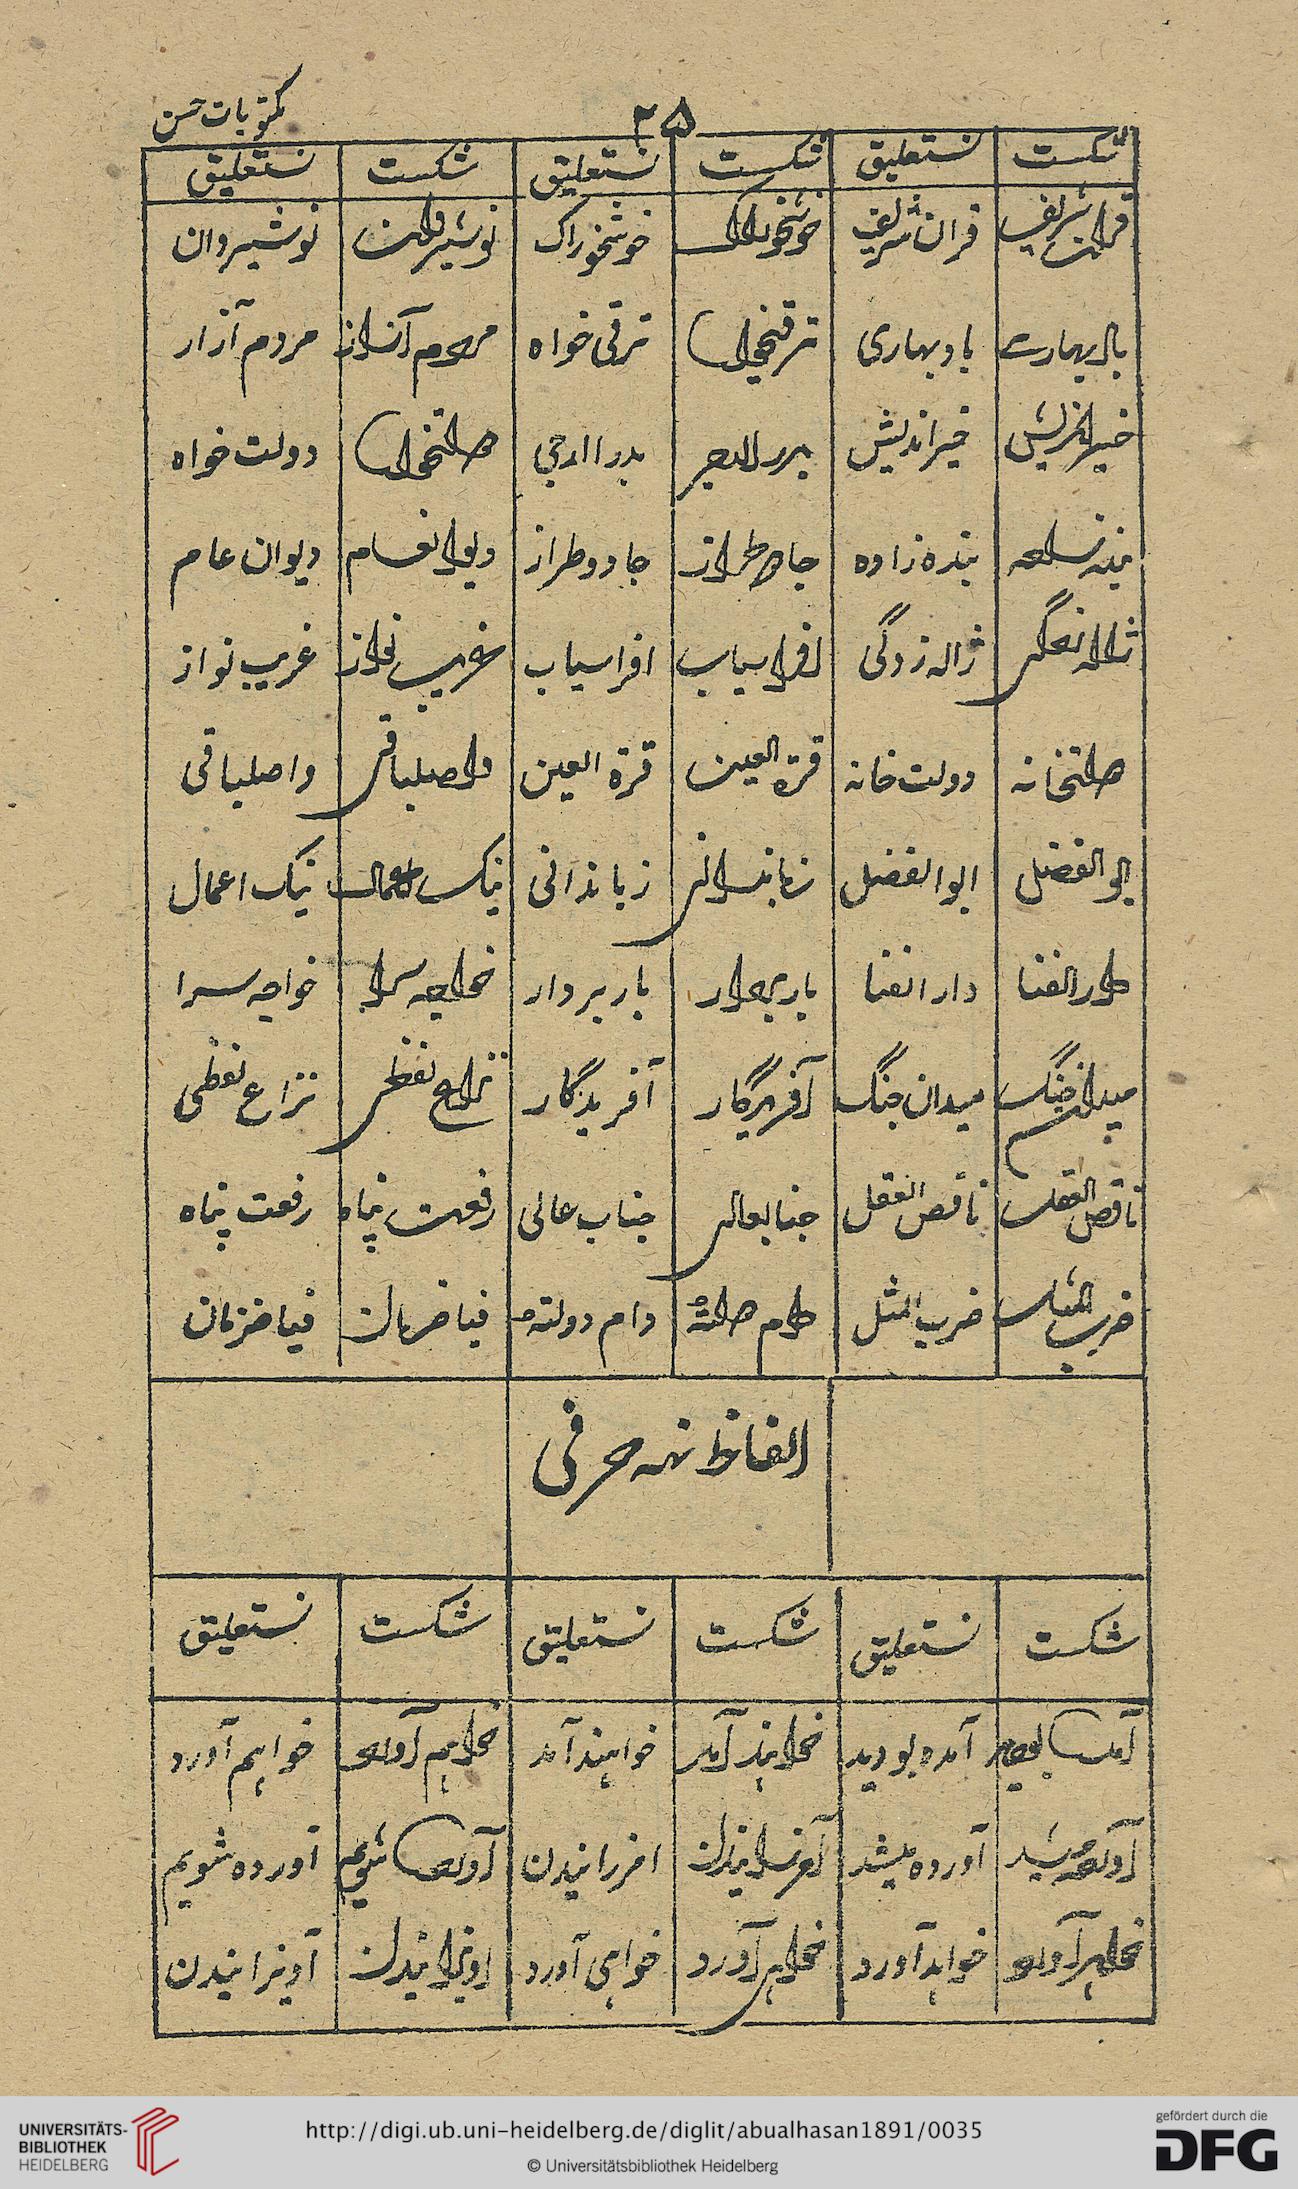 مکتوبات حسن
۳۵
شکست نستعلیق شکست نستعلیق شکست نستعلیق
قرآن شریف قران شریف خوشخوراک خوشخوراک نوشیروان نوشیروان
باد بہاری باد بہاری ترقیخواہ ترقی خواہ مردم آزار مردم آزار
خیراندیش خیراندیش بدرالدجی بدر الدجی دولتخواہ دولت خواہ
بندہ زادہ بندہ زادہ جادو طراز جادو طراز دیوانعام دیوان عام
ژالہ زدگی ژالہ زدگی افراسیاب افراسیاب غریب نواز غریب نواز
دولتخانہ دولت خانہ قرة العین قرة العین واصلباقی واصلباقی
ابو الفضل ابو الفضل زباندانی زباندانی نیک اعمال نیک اعمال
دار الفنا دار الفنا باربردار باربردار خواجہ سرا خواجہ سرا
میدان جنگ میدان جنگ آفریدگار آفریدگار نزاع لفظی نزاع لفظی
ناقص العقل ناقص العقل جنابعالی جناب عالی رفعت پناہ رفعت پناہ
ضرب المثل ضرب المثل دام دولتہ دام دولتہ فیاضزمان فیاضزمان
الفاظ نہ حرفی
شکست نستعلیق شکست نستعلیق شکست نستعلیق
آمدہ بودید آمدہ بودید خواہند آمد خواہند آمد خواہم آورد خواہم آورد
آوردہ میشد آوردہ میشد افرزانیدن افرزانیدن آوردہ شویم آوردہ شویم
خواہد آورد خواہد آورد خواہی آورد خواہی آورد آویزانیدن آویزانیدن
UNIVERSITÄTS-
BIBLIOTHEK
HEIDELBERG
http://digi.ub.uni-heidelberg.de/diglit/abualhasan1891/0035
© Universitätsbibliothek Heidelberg
gefördert durch die
DFG